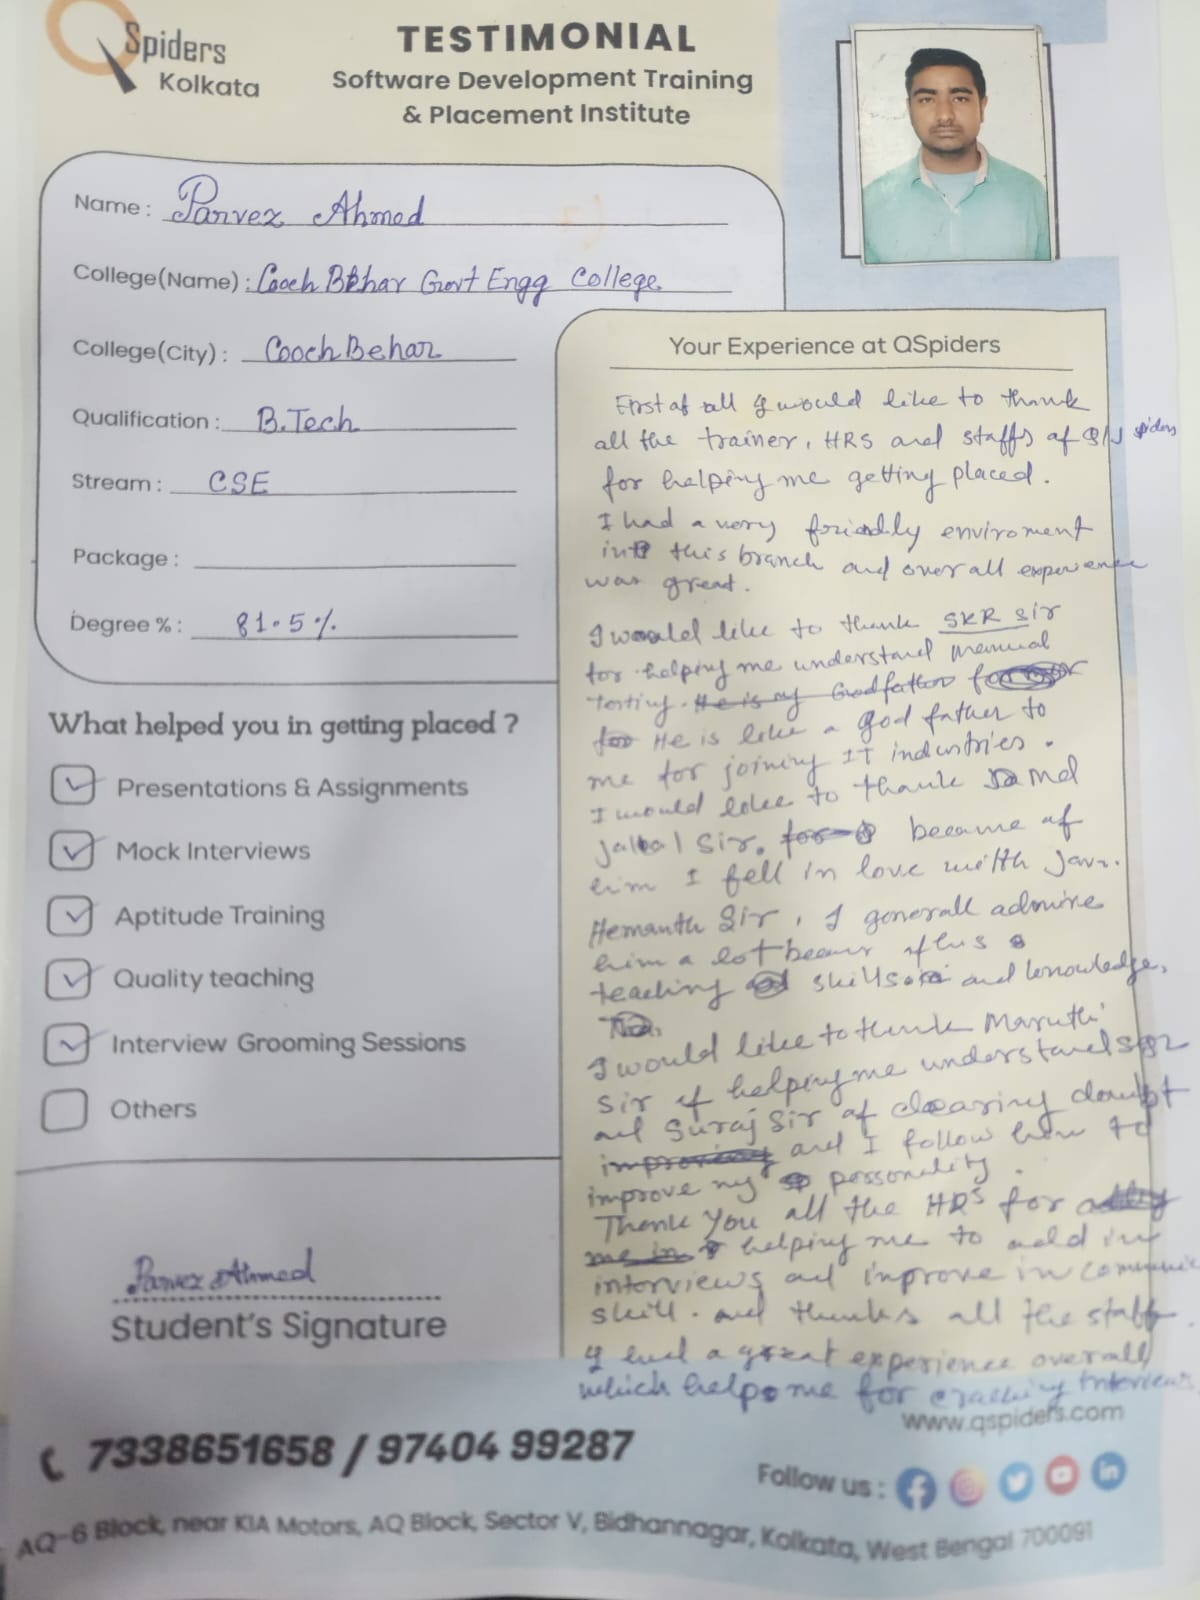 QSpiders
Kolkata
TESTIMONIAL
Software Development Training
& Placement Institute
Name : Parvez Ahmed
College(Name) : Cooch Behar Govt Engg College
College(City) : Cooch Behar
Qualification : B.Tech
Stream : CSE
Package :
Degree % : 81.5%
What helped you in getting placed ?
Presentations & Assignments
Mock Interviews
Aptitude Training
Quality teaching
Interview Grooming Sessions
Others
Parvez Ahmed
Student's Signature
Your Experience at QSpiders
First of all I would like to thank
all the trainer, HRS and staffs of Q/J spiders
for helping me getting placed.
I had a very friendly enviroment
into this branch and over all experience
was great.
I would like to thank SKR Sir
for helping me understand Manual
Testing. He is my Godfather for
for He is like a god father to
me for joining IT industries.
I would like to thank Md
Jalal Sir, because of
him I fell in love with Java.
Hemanth Sir, I generall admire
him a lot because of his
teaching skills and knowledge,
I would like to thank Maruthi
Sir of helping me understand
and Suraj Sir of clearing doubt
improving and I follow him to
improve my personality.
Thank You all the HRS for
me in helping me to add in
interviews and inprove in
skill. and thanks all the staff.
I had a great experience overall
which helps me for cracking Interviews
www.qspiders.com
7338651658 / 97404 99287
Follow us :
AQ-6 Block, near KIA Motors, AQ Block, Sector V, Bidhannagar, Kolkata, West Bengal 700091